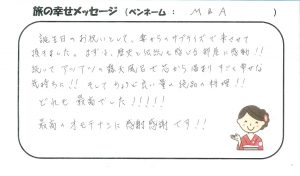 旅の幸せメッセージ（ペンネーム： M & A ）
誕生日のお祝いとして、妻からのサプライズで来させて
頂きました。まずは、歴史と伝統を感じる部屋に感動!!
続いてアツアツの露天風呂で芯から温まりすごく幸せな
気持ちに!! そしてちょうど良い量の絶品の料理!!
どれも最高でした!!!!!
最高のオモテナシに感謝感謝です!!